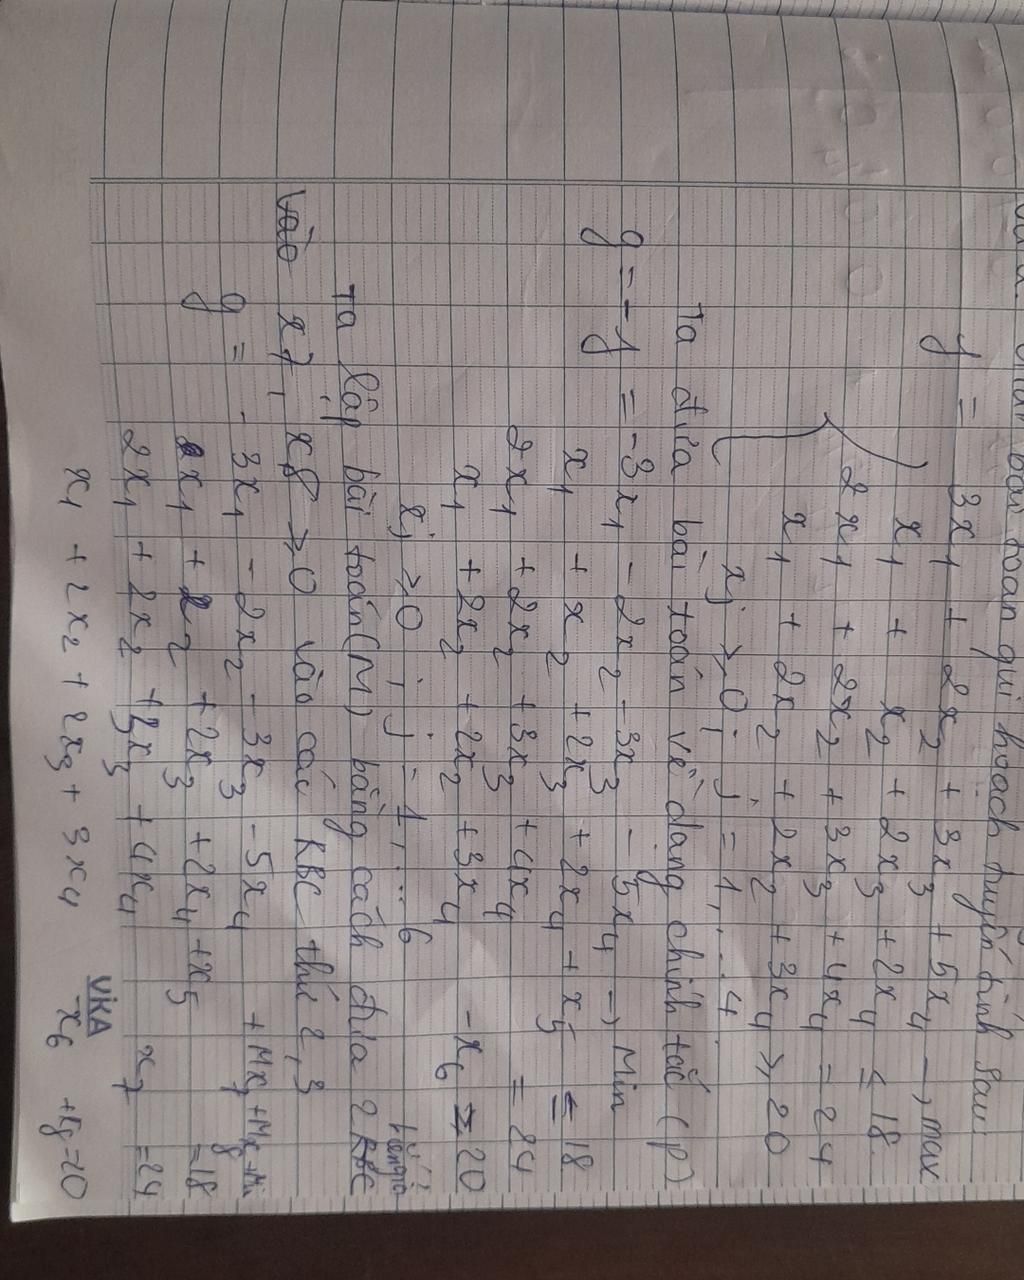 bài toán qui hoạch tuyến tính sau:
f = 3x1 + 2x2 + 3x3 + 5x4 → max
x1 + x2 + 2x3 + 2x4 ≤ 18
2x1 + 2x2 + 3x3 + 4x4 = 24
x1 + 2x2 + 2x2 + 3x4 ≥ 20
xj ≥ 0, j = 1,...4
Ta đưa bài toán về dạng chính tắc (p)
g = -f = -3x1 - 2x2 - 3x3 - 5x4 → Min
x1 + x2 + 2x3 + 2x4 + x5 ≤ 18
2x1 + 2x2 + 3x3 + 4x4 = 24
x1 + 2x2 + 2x2 + 3x4 - x6 ≥ 20
xj ≥ 0, j = 1,... 6
Ta lập bài toán (M) bằng cách đưa 2
vào x7, x8 ≥ 0 vào các RBC thứ 2,3
g = - 3x1 - 2x2 - 3x3 - 5x4 + Mx7 + Mx8
x1 + 2 + 2x3 + 2x4 + x5 = 18
2x1 + 2x2 + 3x3 + 4x4 x7 = 24
x1 + 2x2 + 2x3 + 3x4 -x6 +x8 = 20
ViKA